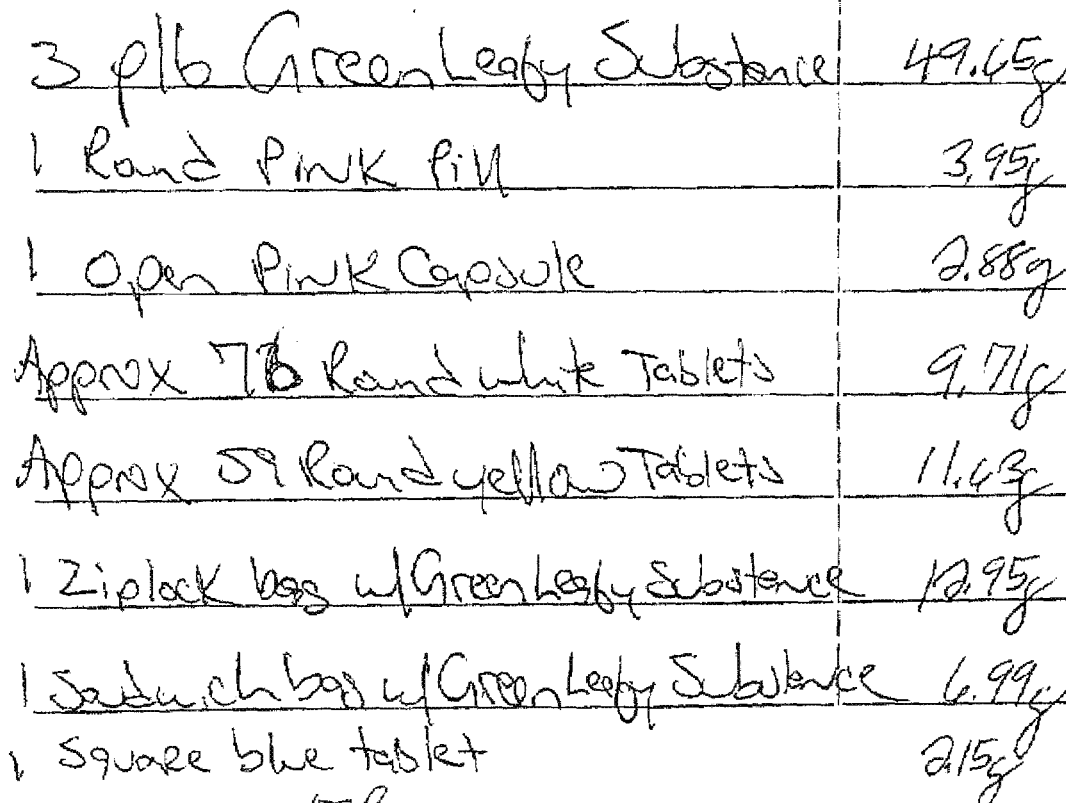 3 p/b Green Leafy Substance 49.65g
1 Round Pink Pill 3.95g
1 Open Pink Capsule 2.88g
Approx 76 Round white Tablets 9.71g
Approx 59 Round yellow Tablets 11.63g
1 Ziplock bag w/ Green Leafy Substance 12.95g
1 Sandwich bag w/ Green Leafy Substance 6.99g
1 Square blue tablet 2.15g